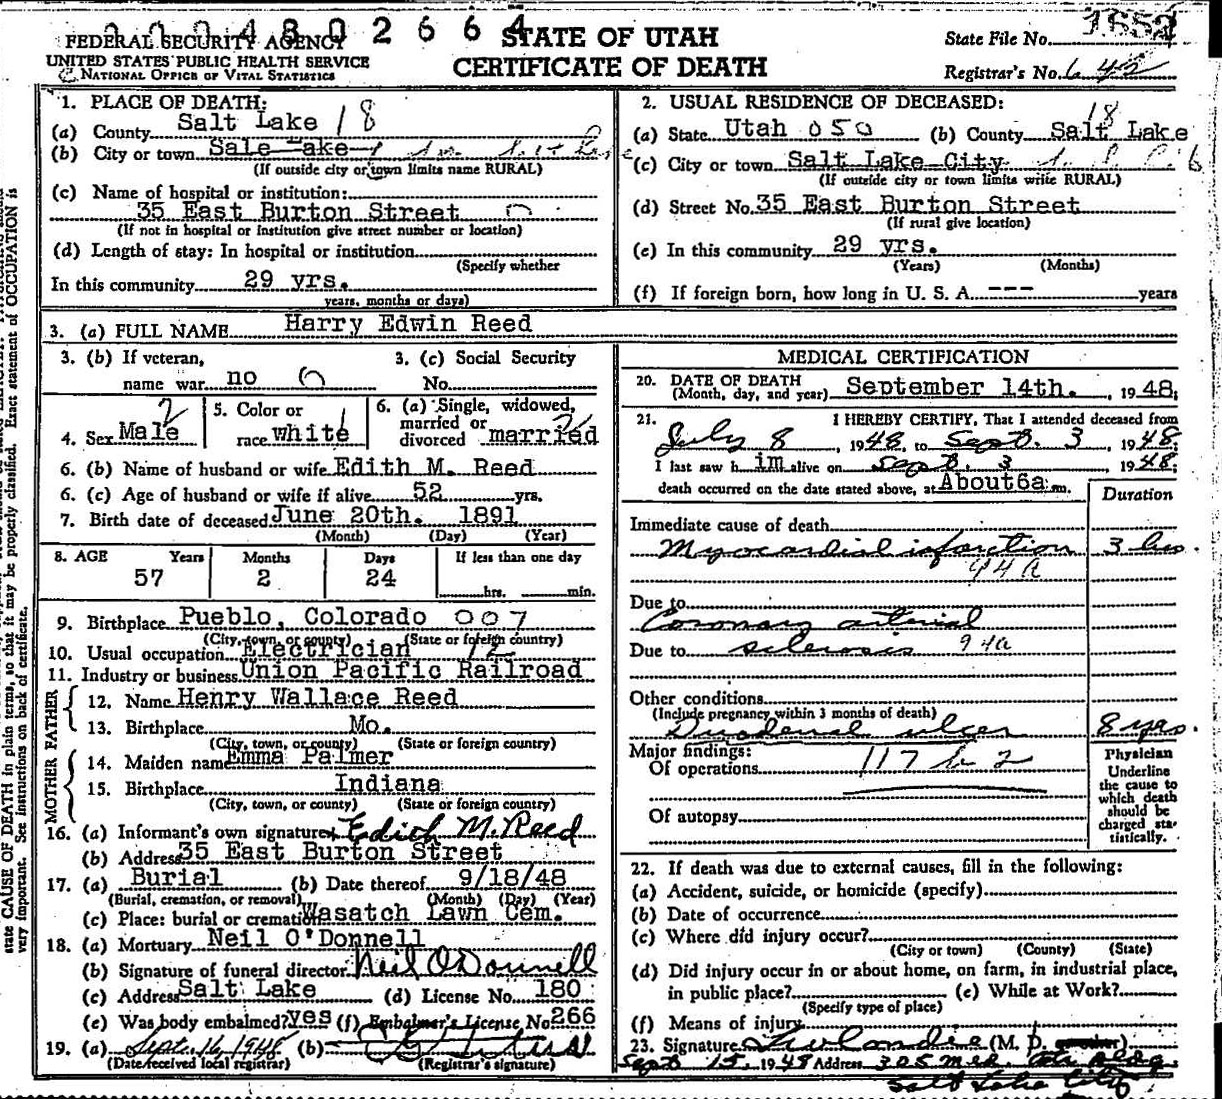 0 0 0 4 8 0 2 6 6 4
FEDERAL SECURITY AGENCY
UNITED STATES PUBLIC HEALTH SERVICE
NATIONAL OFFICE OF VITAL STATISTICS
STATE OF UTAH
CERTIFICATE OF DEATH
State File No.
Registrar's No. 642
1. PLACE OF DEATH:
(a) County Salt Lake 18
(b) City or town Sale Lake
(If outside city or town limits name RURAL)
(c) Name of hospital or institution:
35 East Burton Street
(If not in hospital or institution give street number or location)
(d) Length of stay: In hospital or institution
(Specify whether
In this community 29 yrs.
years, months or days)
2. USUAL RESIDENCE OF DECEASED:
18
(a) State Utah 050 (b) County Salt Lake
(c) City or town Salt Lake City
(If outside city or town limits write RURAL)
(d) Street No. 35 East Burton Street
(If rural give location)
(e) In this community 29 yrs.
(Years) (Months)
(f) If foreign born, how long in U. S. A. --- years
3. (a) FULL NAME Harry Edwin Reed
3. (b) If veteran,
name war no
3. (c) Social Security
No.
4. Sex Male 2
5. Color or
race white 1
6. (a) Single, widowed,
married or
divorced married
6. (b) Name of husband or wife Edith M. Reed
6. (c) Age of husband or wife if alive 52 yrs.
7. Birth date of deceased June 20th. 1891
(Month) (Day) (Year)
8. AGE Years Months Days If less than one day
57 2 24 hrs. min.
9. Birthplace Pueblo, Colorado 007
(City, town, or county) (State or foreign country)
10. Usual occupation Electrician 12
11. Industry or business Union Pacific Railroad
FATHER
12. Name Henry Wallace Reed
13. Birthplace Mo.
(City, town, or county) (State or foreign country)
MOTHER
14. Maiden name Emma Palmer
15. Birthplace Indiana
(City, town, or county) (State or foreign country)
16. (a) Informant's own signature Edith M. Reed
(b) Address 35 East Burton Street
17. (a) Burial (b) Date thereof 9/18/48
(Burial, cremation, or removal) (Month) (Day) (Year)
(c) Place: burial or cremation Wasatch Lawn Cem.
18. (a) Mortuary Neil O'Donnell
(b) Signature of funeral director Neil O'Donnell
(c) Address Salt Lake (d) License No. 180
(e) Was body embalmed? yes (f) Embalmer's License No. 266
19. (a) Sept. 16, 1948 (b)
(Date received local registrar) (Registrar's signature)
MEDICAL CERTIFICATION
20. DATE OF DEATH
(Month, day, and year) September 14th., 1948;
21. I HEREBY CERTIFY, That I attended deceased from
July 8, 1948, to Sept. 3, 1948;
I last saw him alive on Sept. 3, 1948;
death occurred on the date stated above, at About6a m.
Duration
Immediate cause of death
Myocardial infarction 3 hrs.
94a
Due to
Coronary arterial
Due to sclerosis 94a
Other conditions
(Include pregnancy within 3 months of death)
Duodenal ulcer 8 yrs.
Major findings:
Of operations 117 b 2
Of autopsy
Physician
Underline
the cause to
which death
should be
charged sta-
tistically.
22. If death was due to external causes, fill in the following:
(a) Accident, suicide, or homicide (specify)
(b) Date of occurrence
(c) Where did injury occur?
(City or town) (County) (State)
(d) Did injury occur in or about home, on farm, in industrial place,
in public place? (e) While at Work?
(Specify type of place)
(f) Means of injury
23. Signature (M. D.
Sept 15, 1948 Address 305 Med. Arts Bldg.
Salt Lake City
state CAUSE OF DEATH in plain terms, so that it may be properly classified. Exact statement of OCCUPATION is
very important. See instructions on back of certificate.